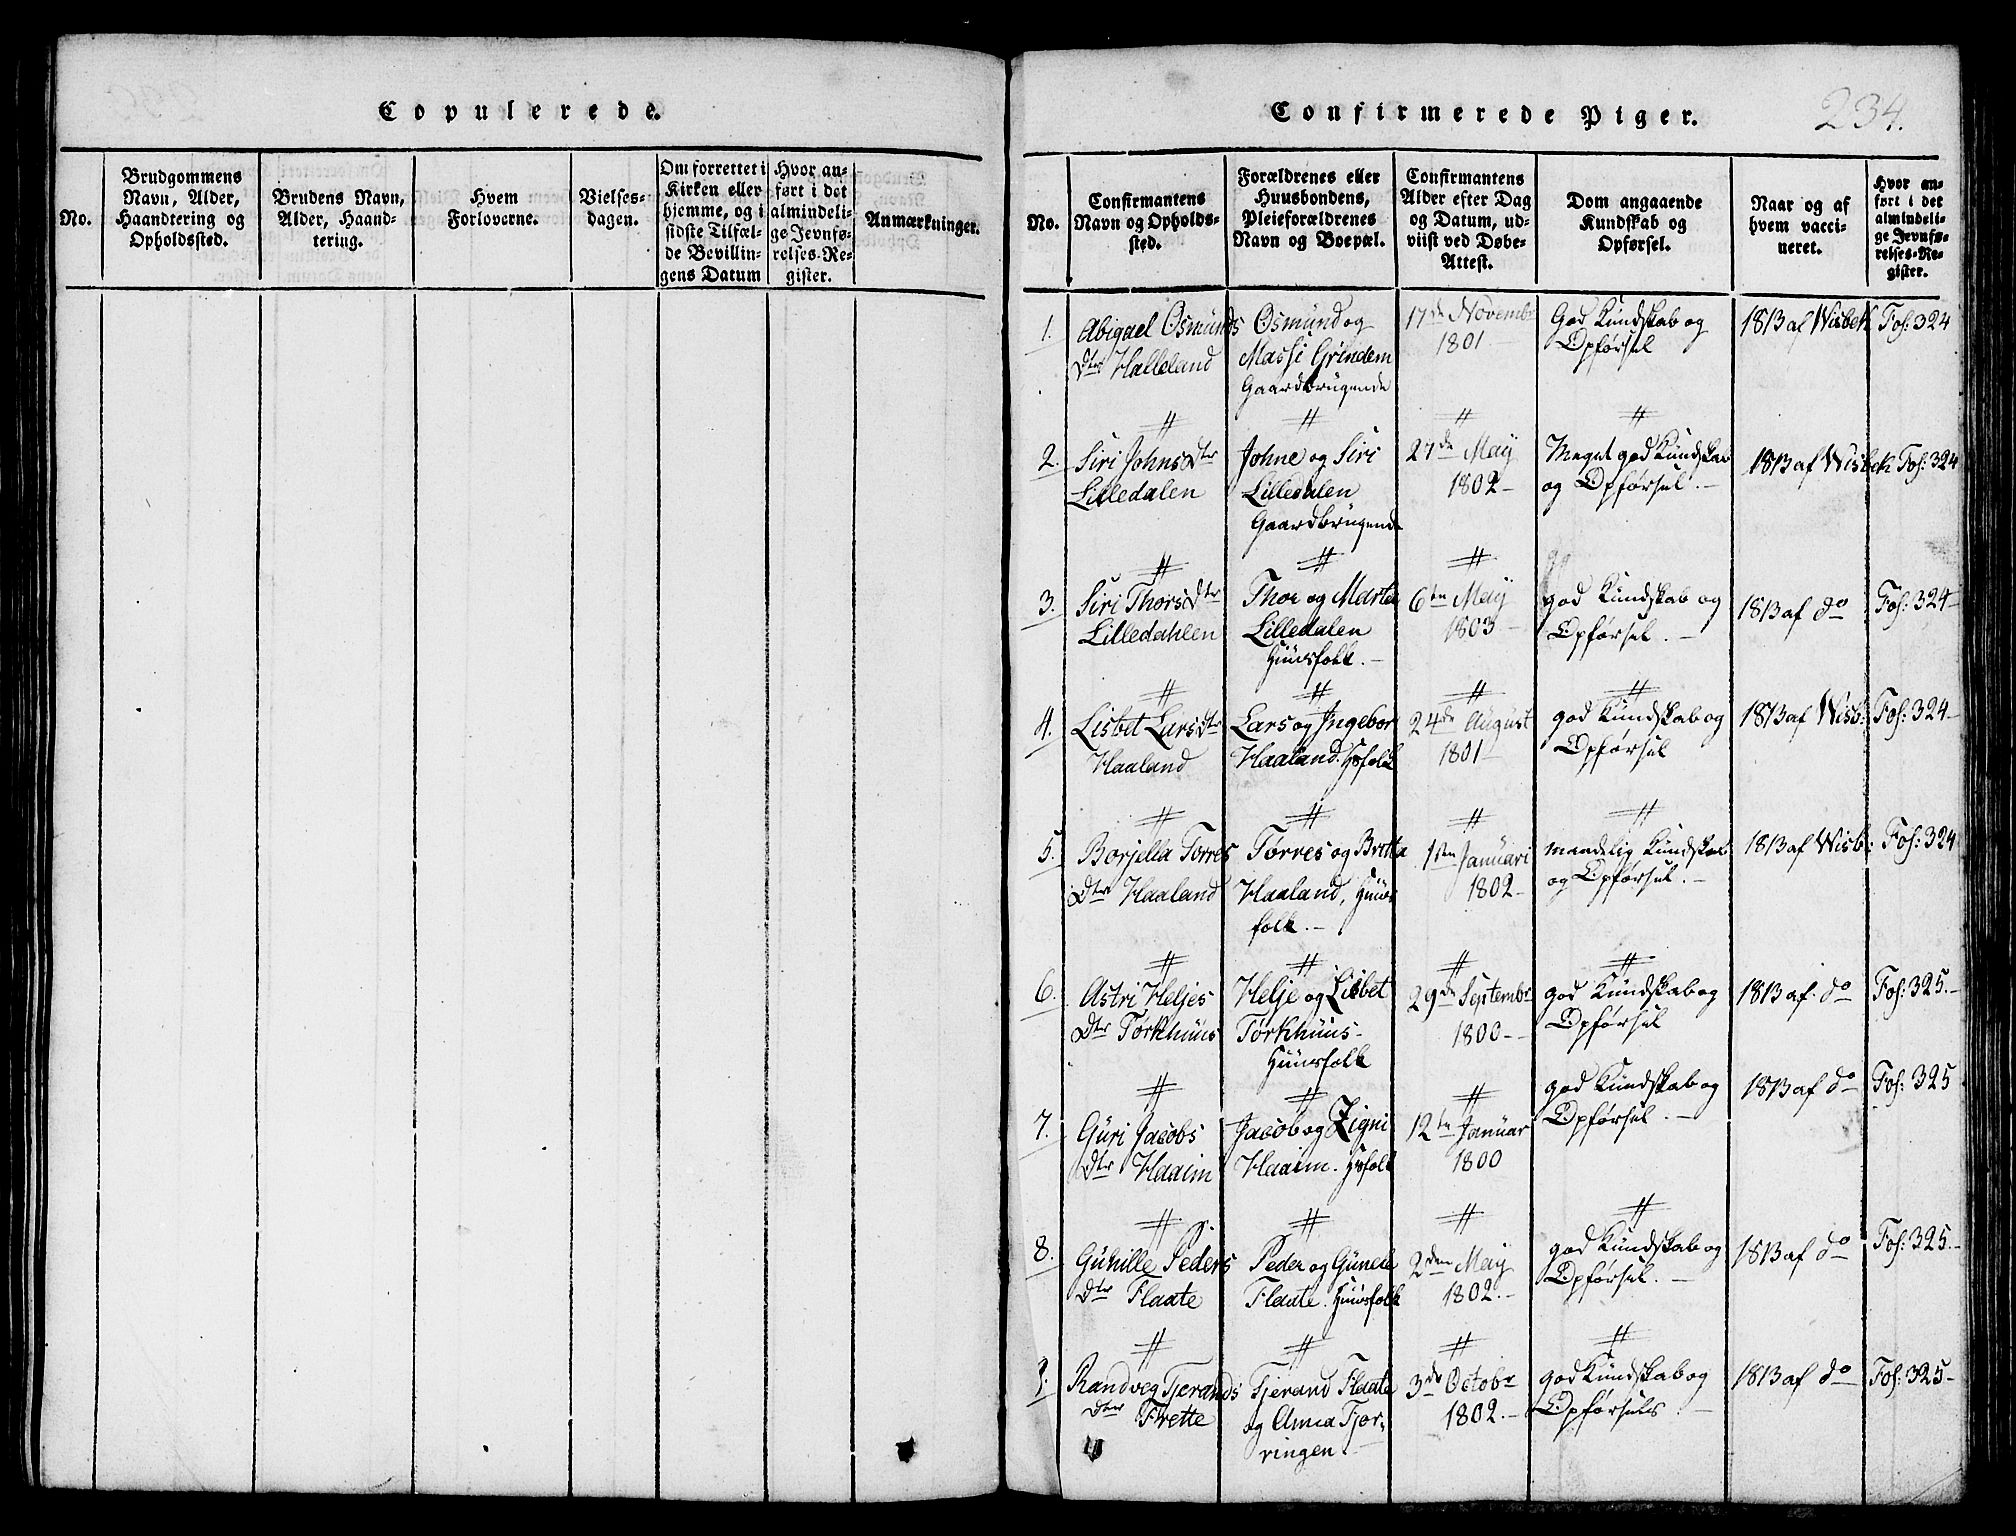 Copulerede.
No.
Brudgommens
Navn, Alder,
Haandtering og
Opholdssted.
Brudens Navn,
Alder, Haand-
tering.
Hvem
Forloverne.
Vielses-
dagen.
Om forrettet i
Kirken eller
hjemme, og i
sidste Tilfæl-
de Bevillin-
gens Datum
Hvor an-
ført i det
almindeli-
ge Jevnfø-
relses-Re-
gister.
Anmærkninger.
Confirmerede Piger.
234.
No.
Confirmantens
Navn og Opholds-
sted.
Forældrenes eller
Huusbondens,
Pleieforældrenes
Navn og Boepæl.
Confirmantens
Alder efter Dag
og Datum, ud-
viist ved Døbe-
Attest.
Dom angaaende
Kundskab og
Opførsel.
Naar og af
hvem vacci-
neret.
Hvor an-
ført i det
almindeli-
ge Jevnfø-
relses-Re-
gister.
1.
Abigael Osmunds
Dtr Halleland
Osmund og
Massi Grindem
Gaardbrugende
17de Novembr
1801.
God Kundskab og
Opførsel
1813 af Wisbek
Fol: 324
2.
Siri JohnsDtr
Lilledalen
Johne og Siri
Lilledalen
Gaardbrugende
27de May
1802-
Meget god Kundskab
og Opførsel.-
1813 af Wisbek
Fol: 324
3.
Siri ThorsDtr
Lilledahlen
Thor og Marta
Lilledalen
Huusfolk.-
6te May
1803-
god Kundskab og
Opførsel.-
1813 af do
Fol: 324-
4.
Lisbet LarsDtr
Haaland
Lars og Ingebor
Haaland. Hsfolk
24de August
1801-
god Kundskab og
Opførsel
1813 af Wisb:
Fol: 324-
5.
Borjella Torres
Dtr Haaland
Tørres og Britta
Haaland, Huus-
folk.-
1ste Januari
1802-
maadelig Kundskab
og Opførsel.-
1813 af Wisb:
Fol: 324
6.
Astri Heljes
Dtr Tørkhuus
Helje og Lisbet
Tørkhuus-
Huusfolk
29de Septembr
1800-
god Kundskab og
Opførsel
1813 af. do
Fol: 325.-
7.
Guri Jacobs
Dtr Haaim
Jacob og Zigni
Haaim. Hsfolk
12te Januar
1800
god Kundskab og
Opførsel.-
1813 af do
Fol: 325
8.
Gunille Peders
Dtr Flaate
Peder og Gunele
Flaate. Huusfolk
2den May
1802.-
god Kundskab og
Opførsel.-
1813 af do
Fol: 325.-
9.
Randveg Tjerands
Dtr Frette
Tjerand Flaate
og Anna Tjor-
ringen.-
3de Octobr
1802.-
god Kundskab og
Opførsels.-
1813 af do
Fol: 325-